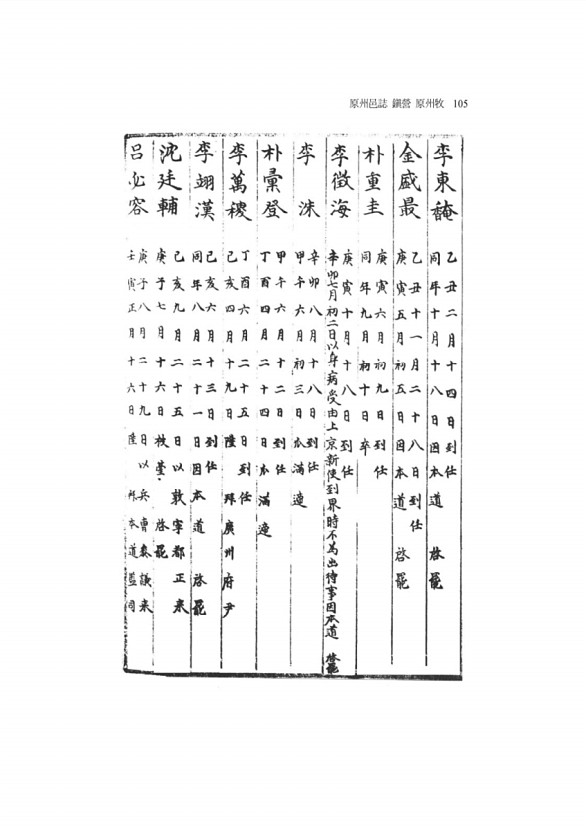 原州邑誌 鎭營 原州牧 105
李東馣
乙丑二月十四日到任
同年十月十八日因本道 啓罷
金盛最
乙丑十一月二十八日到任
庚寅五月初五日因本道 啓罷
朴重圭
庚寅六月初九日到任
同年九月初十日卒
李徵海
庚寅十月十八日到任
辛卯七月初二日以身病受由上京新使到界時不為出待事因本道 啓罷
李 洙
辛卯八月十八日到任
甲午六月初三日瓜滿遞
朴彙登
甲午六月十二日到任
丁酉四月二十四日瓜滿遞
李萬稷
丁酉六月二十五日到任
己亥四月十九日陞拜廣州府尹
李翊漢
己亥六月十三日到任
同年八月二十一日因本道 啓罷
沈廷輔
己亥九月二十五日以敦寧都正來
庚子七月十六日被臺 啓罷
呂必容
庚子八月二十九日以兵曹參議來
壬寅正月十六日陞拜本道監司